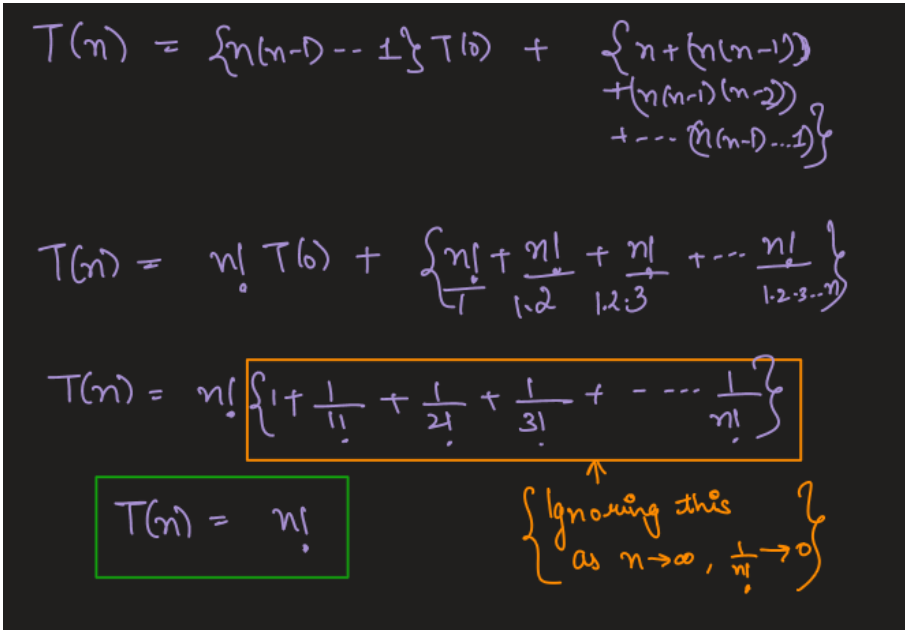 T(n) = {n(n-1) -- 1} T(0) + {n + (n(n-1))
+(n(n-1)(n-2))
+ ---- (n(n-1)...1)}
T(n) = n! T(0) + {n!/1 + n!/1.2 + n!/1.2.3 + ---- n!/1.2.3..n}
T(n) = n! {1 + 1/1! + 1/2! + 1/3! + - ---- 1/n!}
T(n) = n!
{Ignoring this
as n→∞, 1/n! → 0}